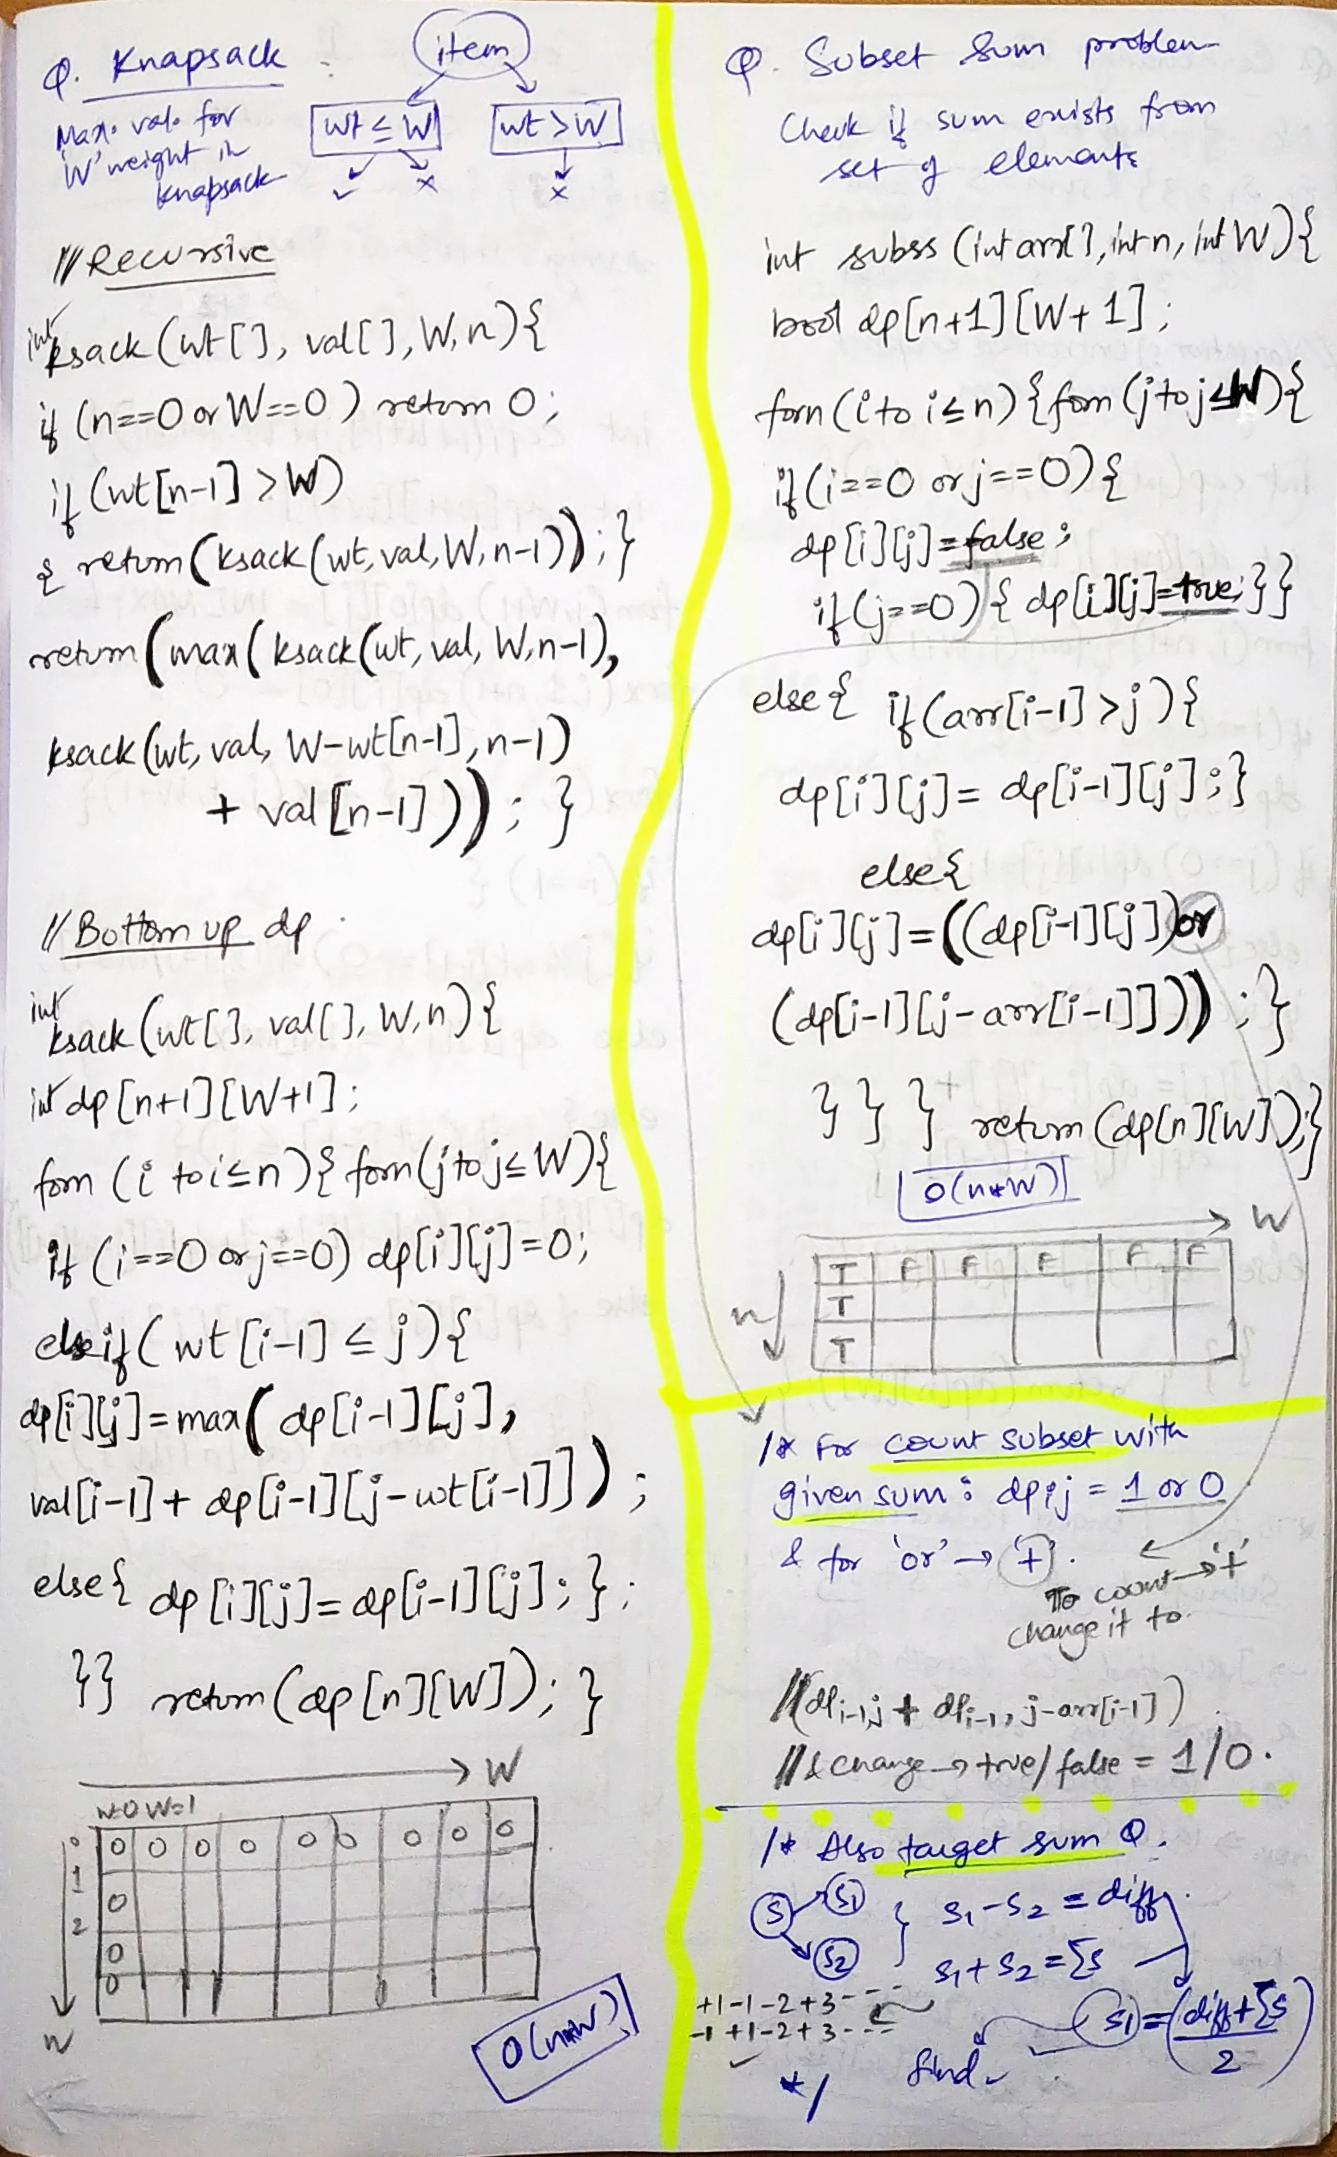 Q. Knapsack
item
Max. val. for
'W' weight in
knapsack
wt ≤ W
wt > W
✓ x
x
// Recursive
int ksack (wt[], val[], W, n){
if (n==0 or W==0) return 0;
if (wt[n-1] > W)
{ return (ksack (wt, val, W, n-1)); }
return (max (ksack (wt, val, W, n-1),
ksack (wt, val, W-wt[n-1], n-1)
+ val [n-1])); }
// Bottom up dp
int ksack (wt[], val[], W, n){
int dp [n+1][W+1];
forn (i to i≤n){ forn (j to j≤W){
if (i==0 or j==0) dp[i][j]=0;
else if ( wt [i-1] ≤ j){
dp[i][j]=max( dp[i-1][j],
val[i-1] + dp[i-1][j-wt[i-1]]);
else{ dp [i][j]= dp[i-1][j]; };
}} return (dp [n][W]); }
→ W
W=0 W=1
0 0 0 0 0 0 0 0 0 0
1
0
2
0
0
n
O(n*W)
Q. Subset Sum problem
Check if sum exists from
set of elements
int subss (int arr[], int n, int W){
bool dp[n+1][W+1];
forn (i to i≤n){ forn (j to j≤W){
if (i==0 or j==0){
dp[i][j]=false;
if (j==0){ dp[i][j]=true; }}
else{ if (arr[i-1] > j){
dp[i][j]= dp[i-1][j]; }
else{
dp[i][j]=((dp[i-1][j]) or
(dp[i-1][j-arr[i-1]])); }
} } } return (dp[n][W]);}
O(n*W)
→ W
T F F F F F
n
T
T
/* For count subset with
given sum: dpij = 1 or 0
& for 'or' → '+'.
To count → '+'
change it to.
//(dpi-1j + dpi-1, j-arr[i-1])
// & change → true/false = 1/0.
/* Also target sum Q.
S S1
S2
S1-S2 = diff
S1+S2 = Σs
+1-1-2+3---
-1+1-2+3---
✓
S1 = (diff+Σs
2)
find
*/